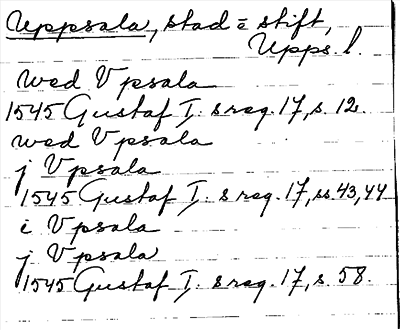 Uppsala, stad = stift,
Upps. l.
wed Vpsala
1545 Gustaf I: s reg. 17, s. 12.
wed Vpsala
j Vpsala
1545 Gustaf I: s reg. 17, ss. 43, 44
i Vpsala
j Vpsala
1545 Gustaf I: s reg. 17, s. 58.